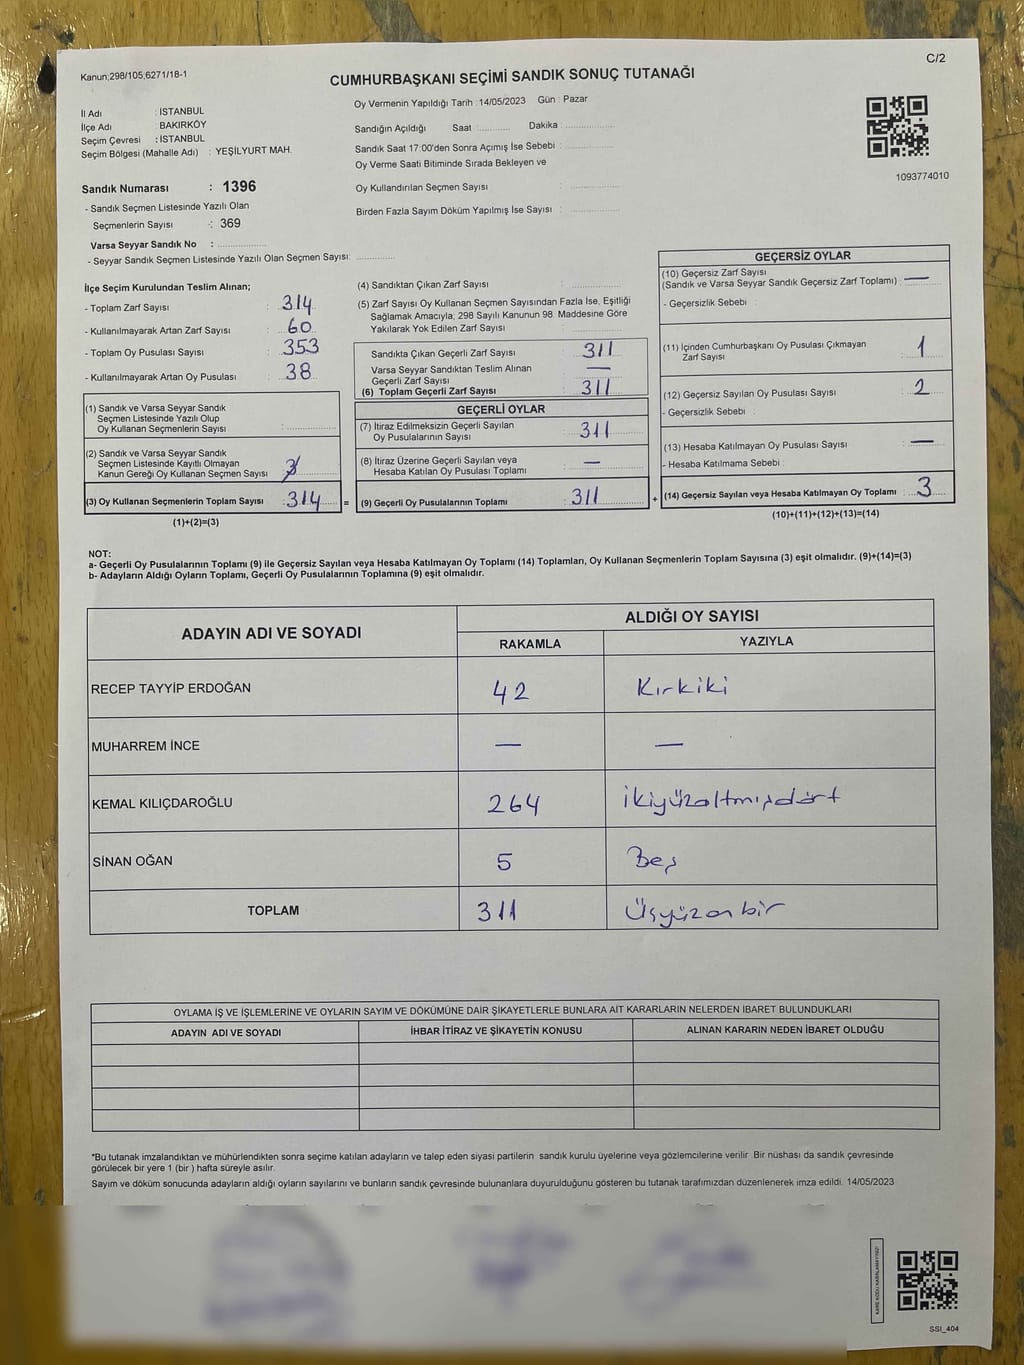 Kanun;298/105,6271/18-1
C/2
CUMHURBAŞKANI SEÇİMİ SANDIK SONUÇ TUTANAĞI
İl Adı : İSTANBUL
İlçe Adı : BAKIRKÖY
Seçim Çevresi : İSTANBUL
Seçim Bölgesi (Mahalle Adı) : YEŞİLYURT MAH.
Oy Vermenin Yapıldığı Tarih : 14/05/2023 Gün : Pazar
Sandığın Açıldığı Saat Dakika :
Sandık Saat 17:00'den Sonra Açımış İse Sebebi :
Oy Verme Saati Bitiminde Sırada Bekleyen ve
Oy Kullandırılan Seçmen Sayısı :
Birden Fazla Sayım Döküm Yapılmış İse Sayısı :
1093774010
Sandık Numarası : 1396
- Sandık Seçmen Listesinde Yazılı Olan
Seçmenlerin Sayısı : 369
Varsa Seyyar Sandık No :
- Seyyar Sandık Seçmen Listesinde Yazılı Olan Seçmen Sayısı:
İlçe Seçim Kurulundan Teslim Alınan;
- Toplam Zarf Sayısı : 314
- Kullanılmayarak Artan Zarf Sayısı : 60
- Toplam Oy Pusulası Sayısı : 353
- Kullanılmayarak Artan Oy Pusulası : 38
(1) Sandık ve Varsa Seyyar Sandık
Seçmen Listesinde Yazılı Olup
Oy Kullanan Seçmenlerin Sayısı :
(2) Sandık ve Varsa Seyyar Sandık
Seçmen Listesinde Kayıtlı Olmayan
Kanun Gereği Oy Kullanan Seçmen Sayısı :
(3) Oy Kullanan Seçmenlerin Toplam Sayısı : 314 =
(1)+(2)=(3)
(4) Sandıktan Çıkan Zarf Sayısı :
(5) Zarf Sayısı Oy Kullanan Seçmen Sayısından Fazla İse, Eşitliği
Sağlamak Amacıyla; 298 Sayılı Kanunun 98. Maddesine Göre
Yakılarak Yok Edilen Zarf Sayısı :
Sandıkta Çıkan Geçerli Zarf Sayısı : 311
Varsa Seyyar Sandıktan Teslim Alınan
Geçerli Zarf Sayısı : —
(6) Toplam Geçerli Zarf Sayısı : 311
GEÇERLİ OYLAR
(7) İtiraz Edilmeksizin Geçerli Sayılan
Oy Pusulalarının Sayısı : 311
(8) İtiraz Üzerine Geçerli Sayılan veya
Hesaba Katılan Oy Pusulası Toplamı : —
(9) Geçerli Oy Pusulalarının Toplamı : 311 +
GEÇERSİZ OYLAR
(10) Geçersiz Zarf Sayısı
(Sandık ve Varsa Seyyar Sandık Geçersiz Zarf Toplamı) : —
- Geçersizlik Sebebi :
(11) İçinden Cumhurbaşkanı Oy Pusulası Çıkmayan
Zarf Sayısı : 1
(12) Geçersiz Sayılan Oy Pusulası Sayısı : 2
- Geçersizlik Sebebi :
(13) Hesaba Katılmayan Oy Pusulası Sayısı : —
- Hesaba Katılmama Sebebi :
(14) Geçersiz Sayılan veya Hesaba Katılmayan Oy Toplamı : 3
(10)+(11)+(12)+(13)=(14)
NOT:
a- Geçerli Oy Pusulalarının Toplamı (9) ile Geçersiz Sayılan veya Hesaba Katılmayan Oy Toplamı (14) Toplamları, Oy Kullanan Seçmenlerin Toplam Sayısına (3) eşit olmalıdır. (9)+(14)=(3)
b- Adayların Aldığı Oyların Toplamı, Geçerli Oy Pusulalarının Toplamına (9) eşit olmalıdır.
ADAYIN ADI VE SOYADI ALDIĞI OY SAYISI
RAKAMLA YAZIYLA
RECEP TAYYİP ERDOĞAN 42 Kırkiki
MUHARREM İNCE — —
KEMAL KILIÇDAROĞLU 264 İkiyüzaltmışdört
SİNAN OĞAN 5 Beş
TOPLAM 311 Üçyüzonbir
OYLAMA İŞ VE İŞLEMLERİNE VE OYLARIN SAYIM VE DÖKÜMÜNE DAİR ŞİKAYETLERLE BUNLARA AİT KARARLARIN NELERDEN İBARET BULUNDUKLARI
ADAYIN ADI VE SOYADI İHBAR İTİRAZ VE ŞİKAYETİN KONUSU ALINAN KARARIN NEDEN İBARET OLDUĞU
*Bu tutanak imzalandıktan ve mühürlendikten sonra seçime katılan adayların ve talep eden siyasi partilerin sandık kurulu üyelerine veya gözlemcilerine verilir. Bir nüshası da sandık çevresinde
görülecek bir yere 1 (bir ) hafta süreyle asılır.
Sayım ve döküm sonucunda adayların aldığı oyların sayılarını ve bunların sandık çevresinde bulunanlara duyurulduğunu gösteren bu tutanak tarafımızdan düzenlenerek imza edildi. 14/05/2023
SSI_404